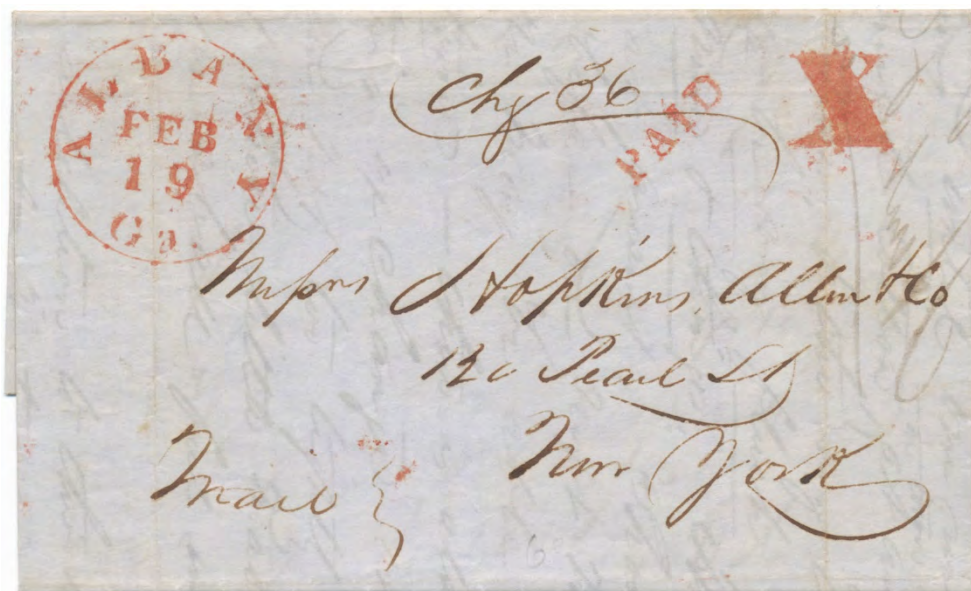 ALBANY
FEB
19
Ga.
Chg 36
PAID
X
Messrs J Hopkins, Allen & Co
120 Pearl St
New York
Mail
6